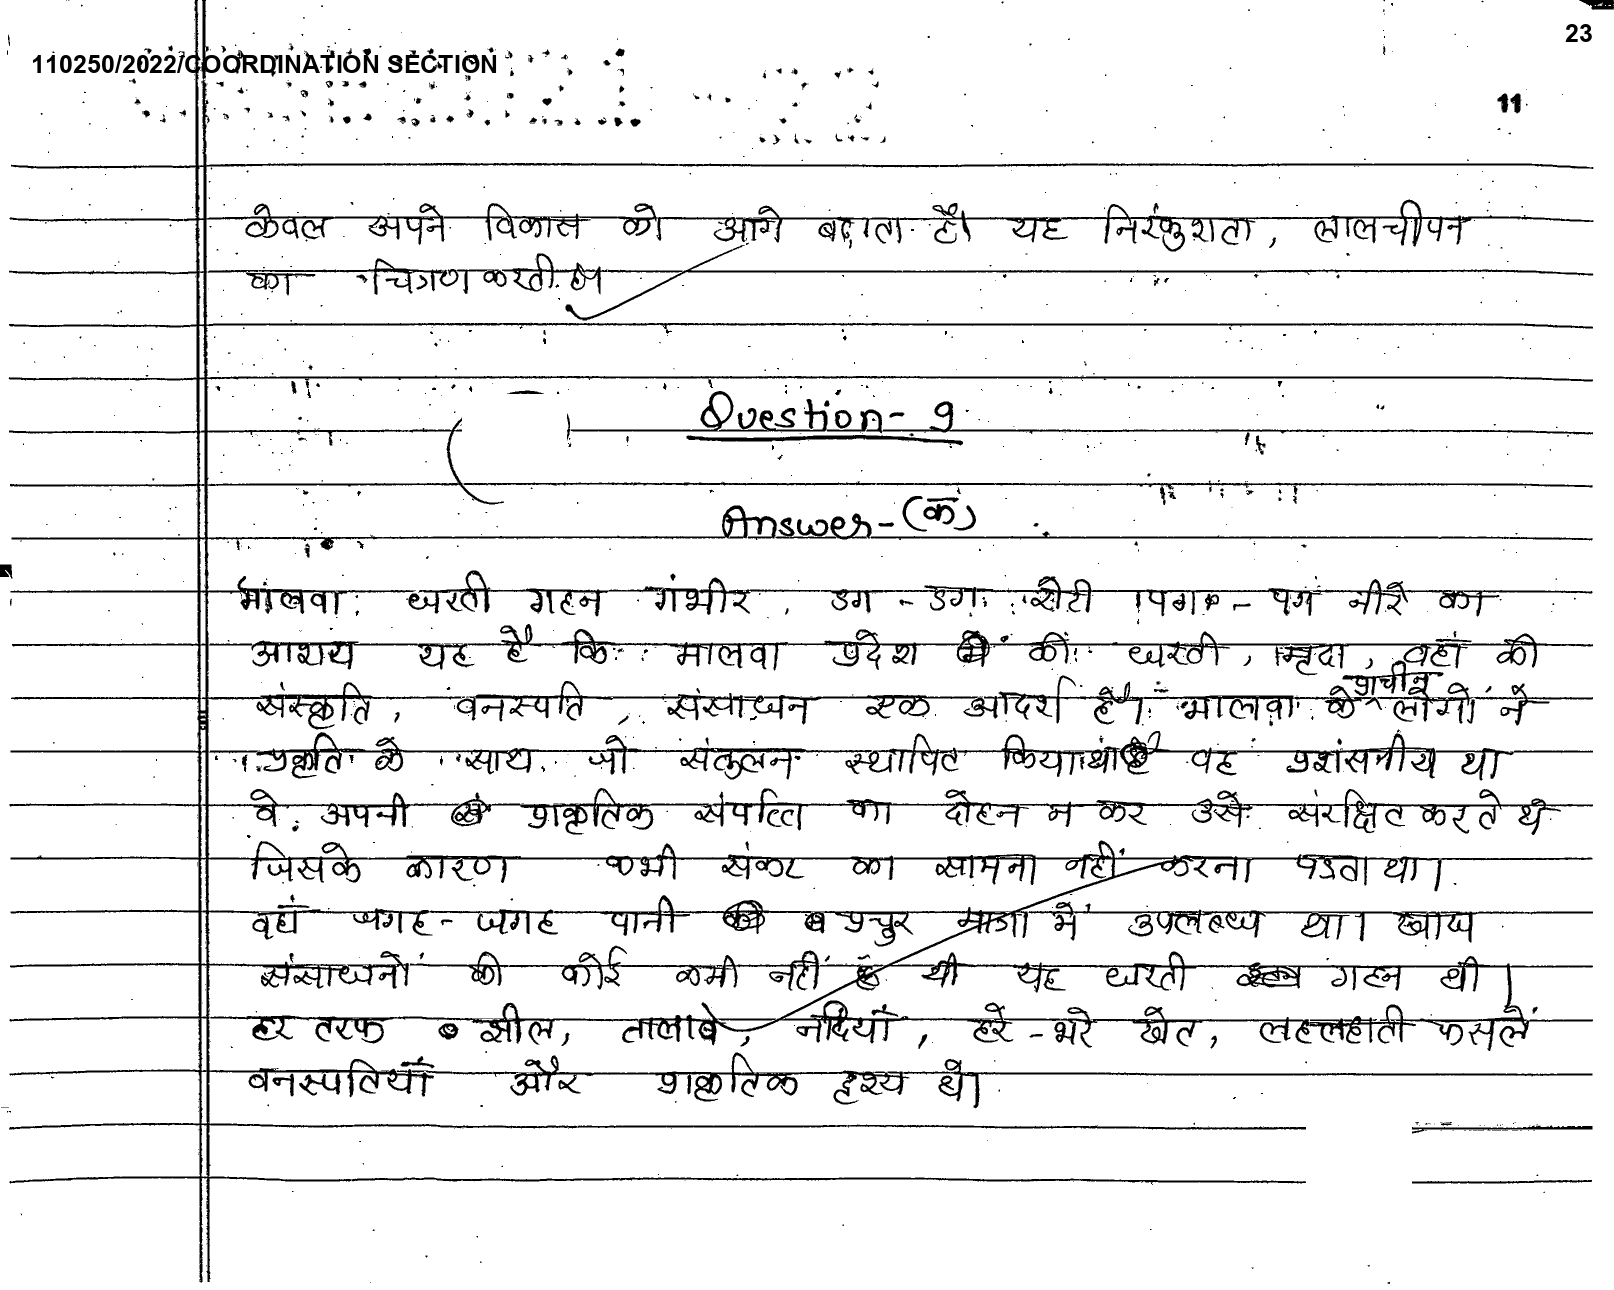 23
110250/2022/COORDINATION SECTION
11
केवल अपने विकास को आगे बढ़ाता है। यह निरंकुशता, लालचीपन
का चित्रण करती है।
Question - 9
Answer - (क)
मालवा धरती गहन गंभीर, डग - डग रोटी पग - पग नीर का
आशय यह है कि मालवा प्रदेश की धरती, मृदा, वहां की
संस्कृति, वनस्पति, संसाधन एक आदर्श है। मालवा के प्राचीन लोगों ने
प्रकृति के साथ जो संतुलन स्थापित किया था वह प्रशंसनीय था
वे अपनी प्राकृतिक संपत्ति का दोहन न कर उसे संरक्षित करते थे
जिसके कारण कभी संकट का सामना नहीं करना पडता था।
वहाँ जगह - जगह पानी प्रचुर मात्रा में उपलब्ध था। खाद्य
संसाधनों की कोई कमी नहीं थी यह धरती गहन थी।
हर तरफ झील, तालाबे, नदियाँ, हरे - भरे खेत, लहलहाती फसलें
वनस्पतियाँ और प्राकृतिक दृश्य थे।